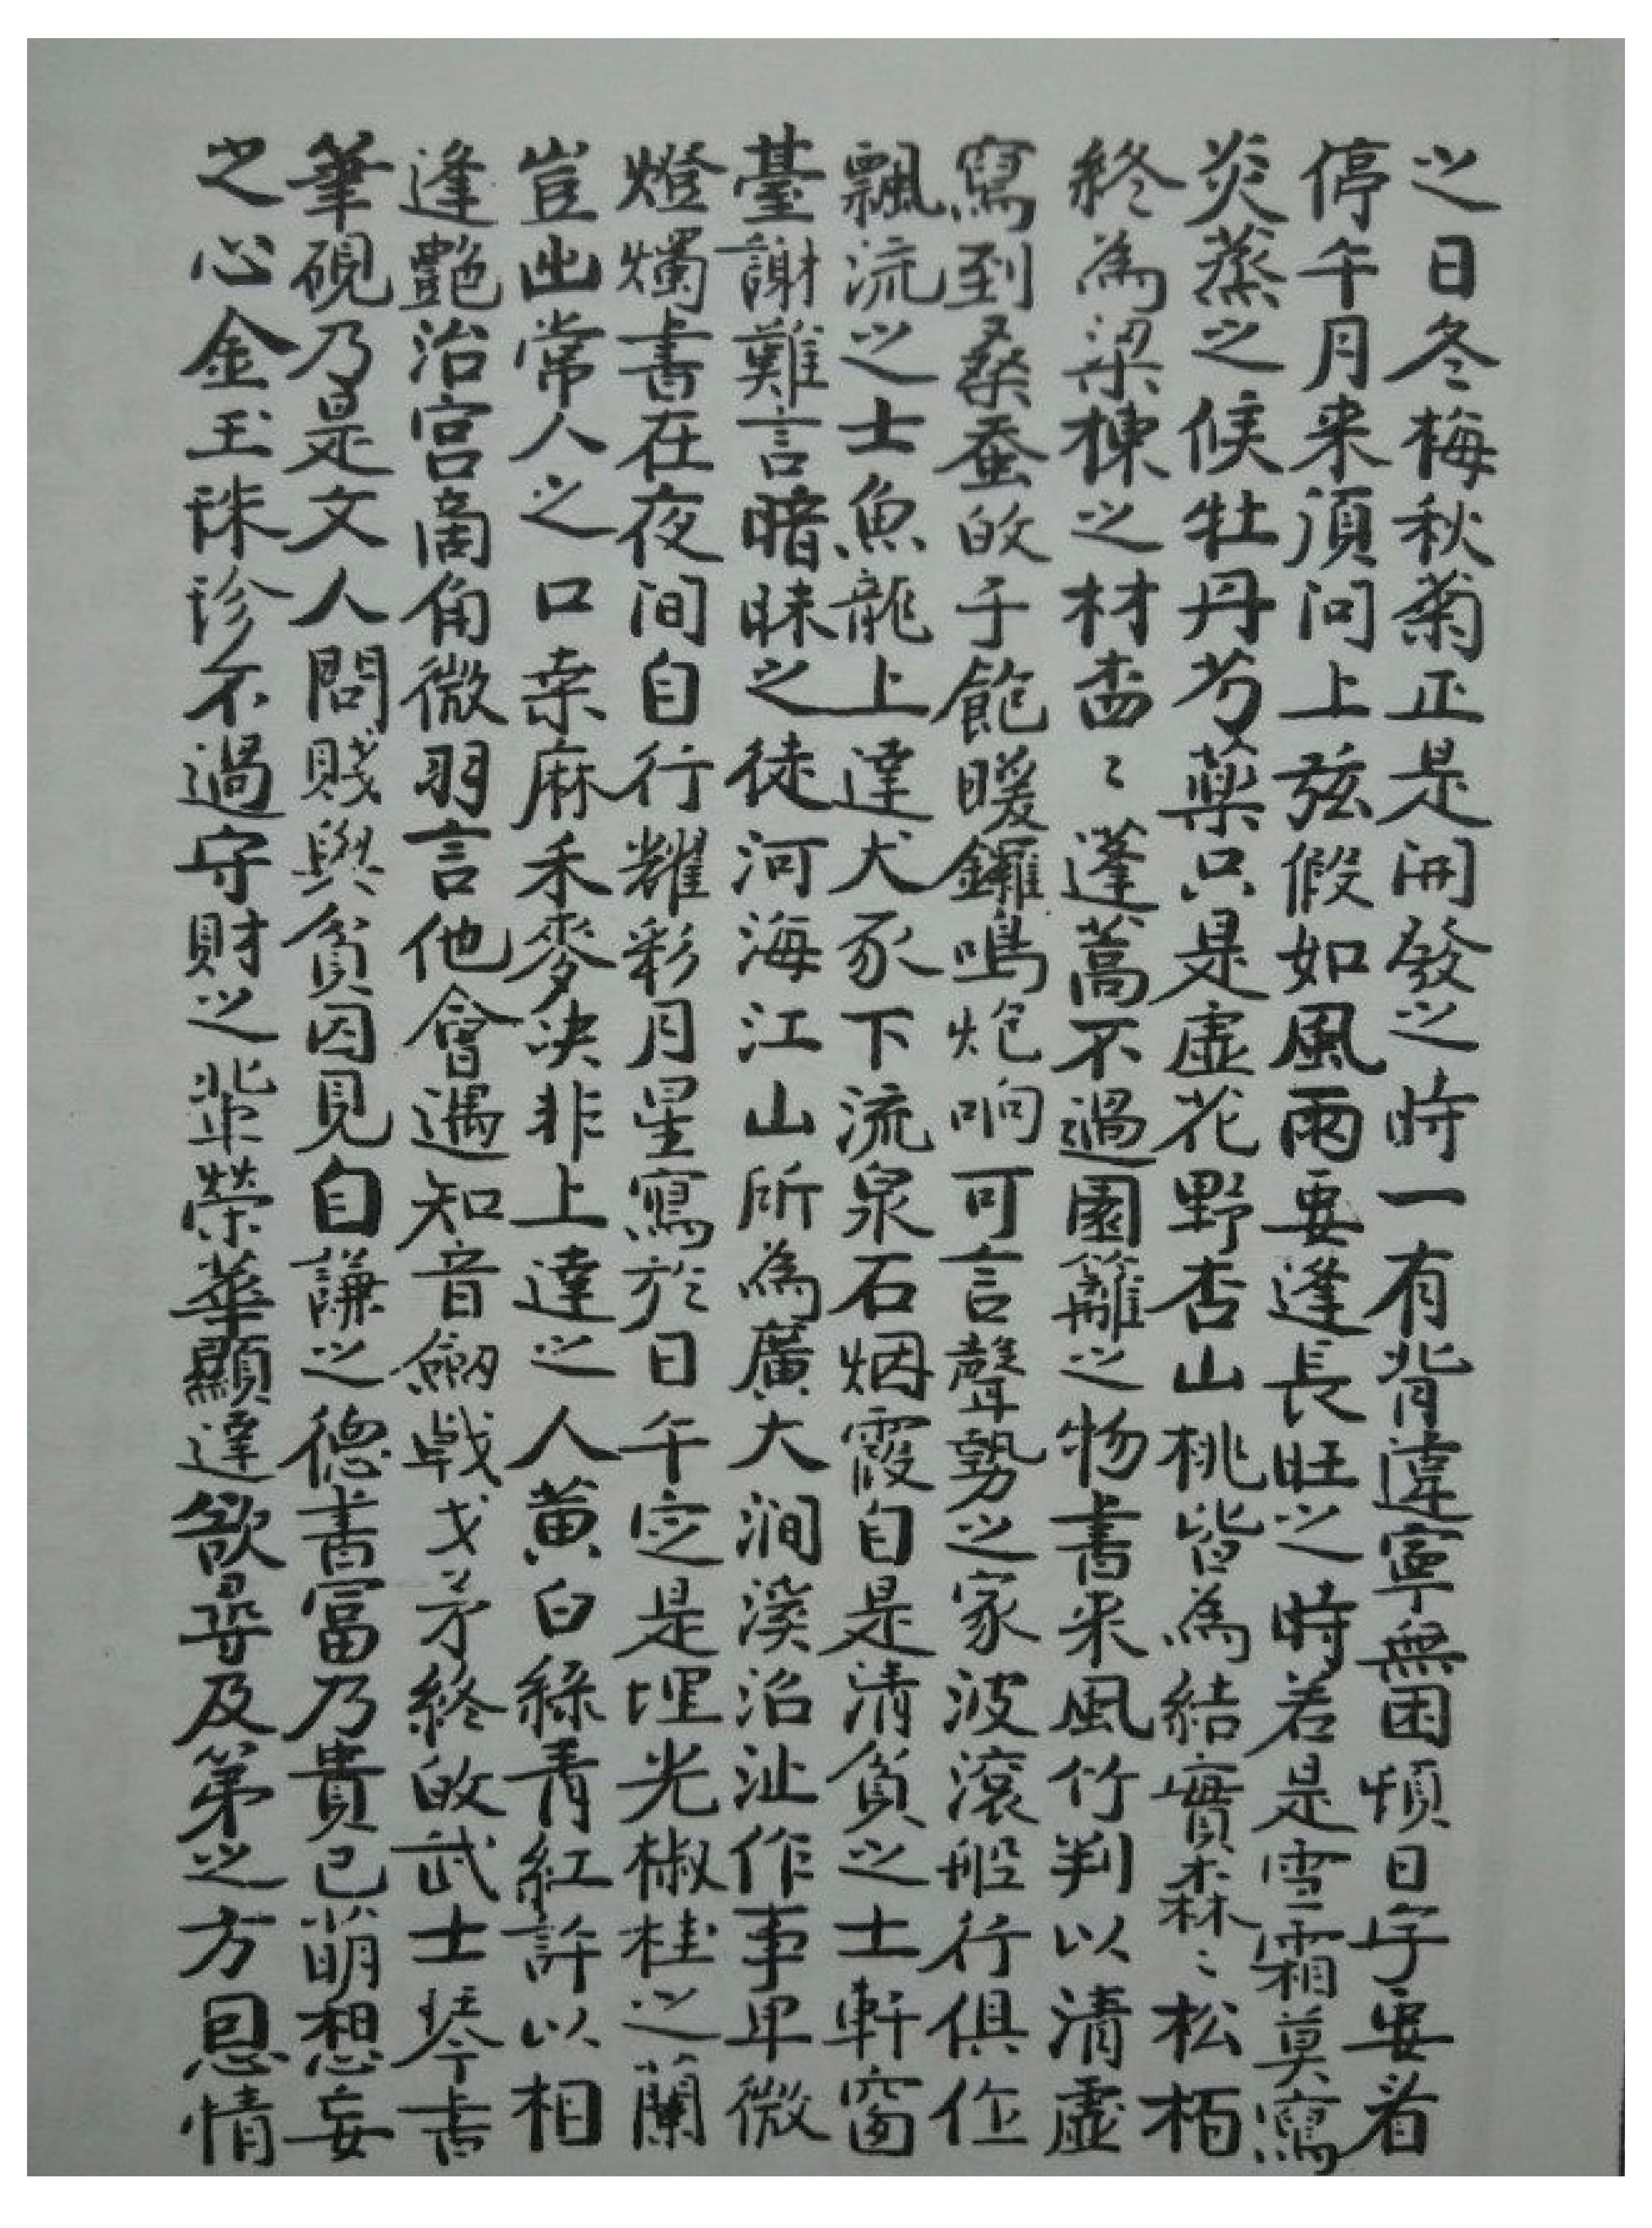 之日冬梅秋菊正是開發之時一有背違寧無困煩日字要看
停午月来須问上弦假如風雨要逢長旺之時若是雪霜莫寫
炎蒸之候牡丹芍藥只是虚花野杏山桃皆為結實森森〻松栢
終為梁棟之材杳〻蓬蒿不過園籬之物書来風竹判以清虚
寫到桑蚕的于飽暖鑼鳴炮响可言聲勢之家波滾船行俱作
飄流之士魚龍上達犬豕下流泉石烟霞自是清貧之士軒窗
臺謝難言暗昧之徒河海江山所為廣大澗溪沿沚作事卑微
燈燭書在夜间自行耀彩月星寫於日午定是埋光椒桂之蘭
豈出常人之口桒麻禾麥决非上達之人黄白綠青紅許以相
逢艷治宫啇角微羽言他會遇知音劔戟戈矛終的武士琴書
筆硯乃是文人問賤與貧因見自謙之德書富乃貴已萌想妄
之心金玉珠珍不過守財之輩榮華顯達欲尋及第之方恩情